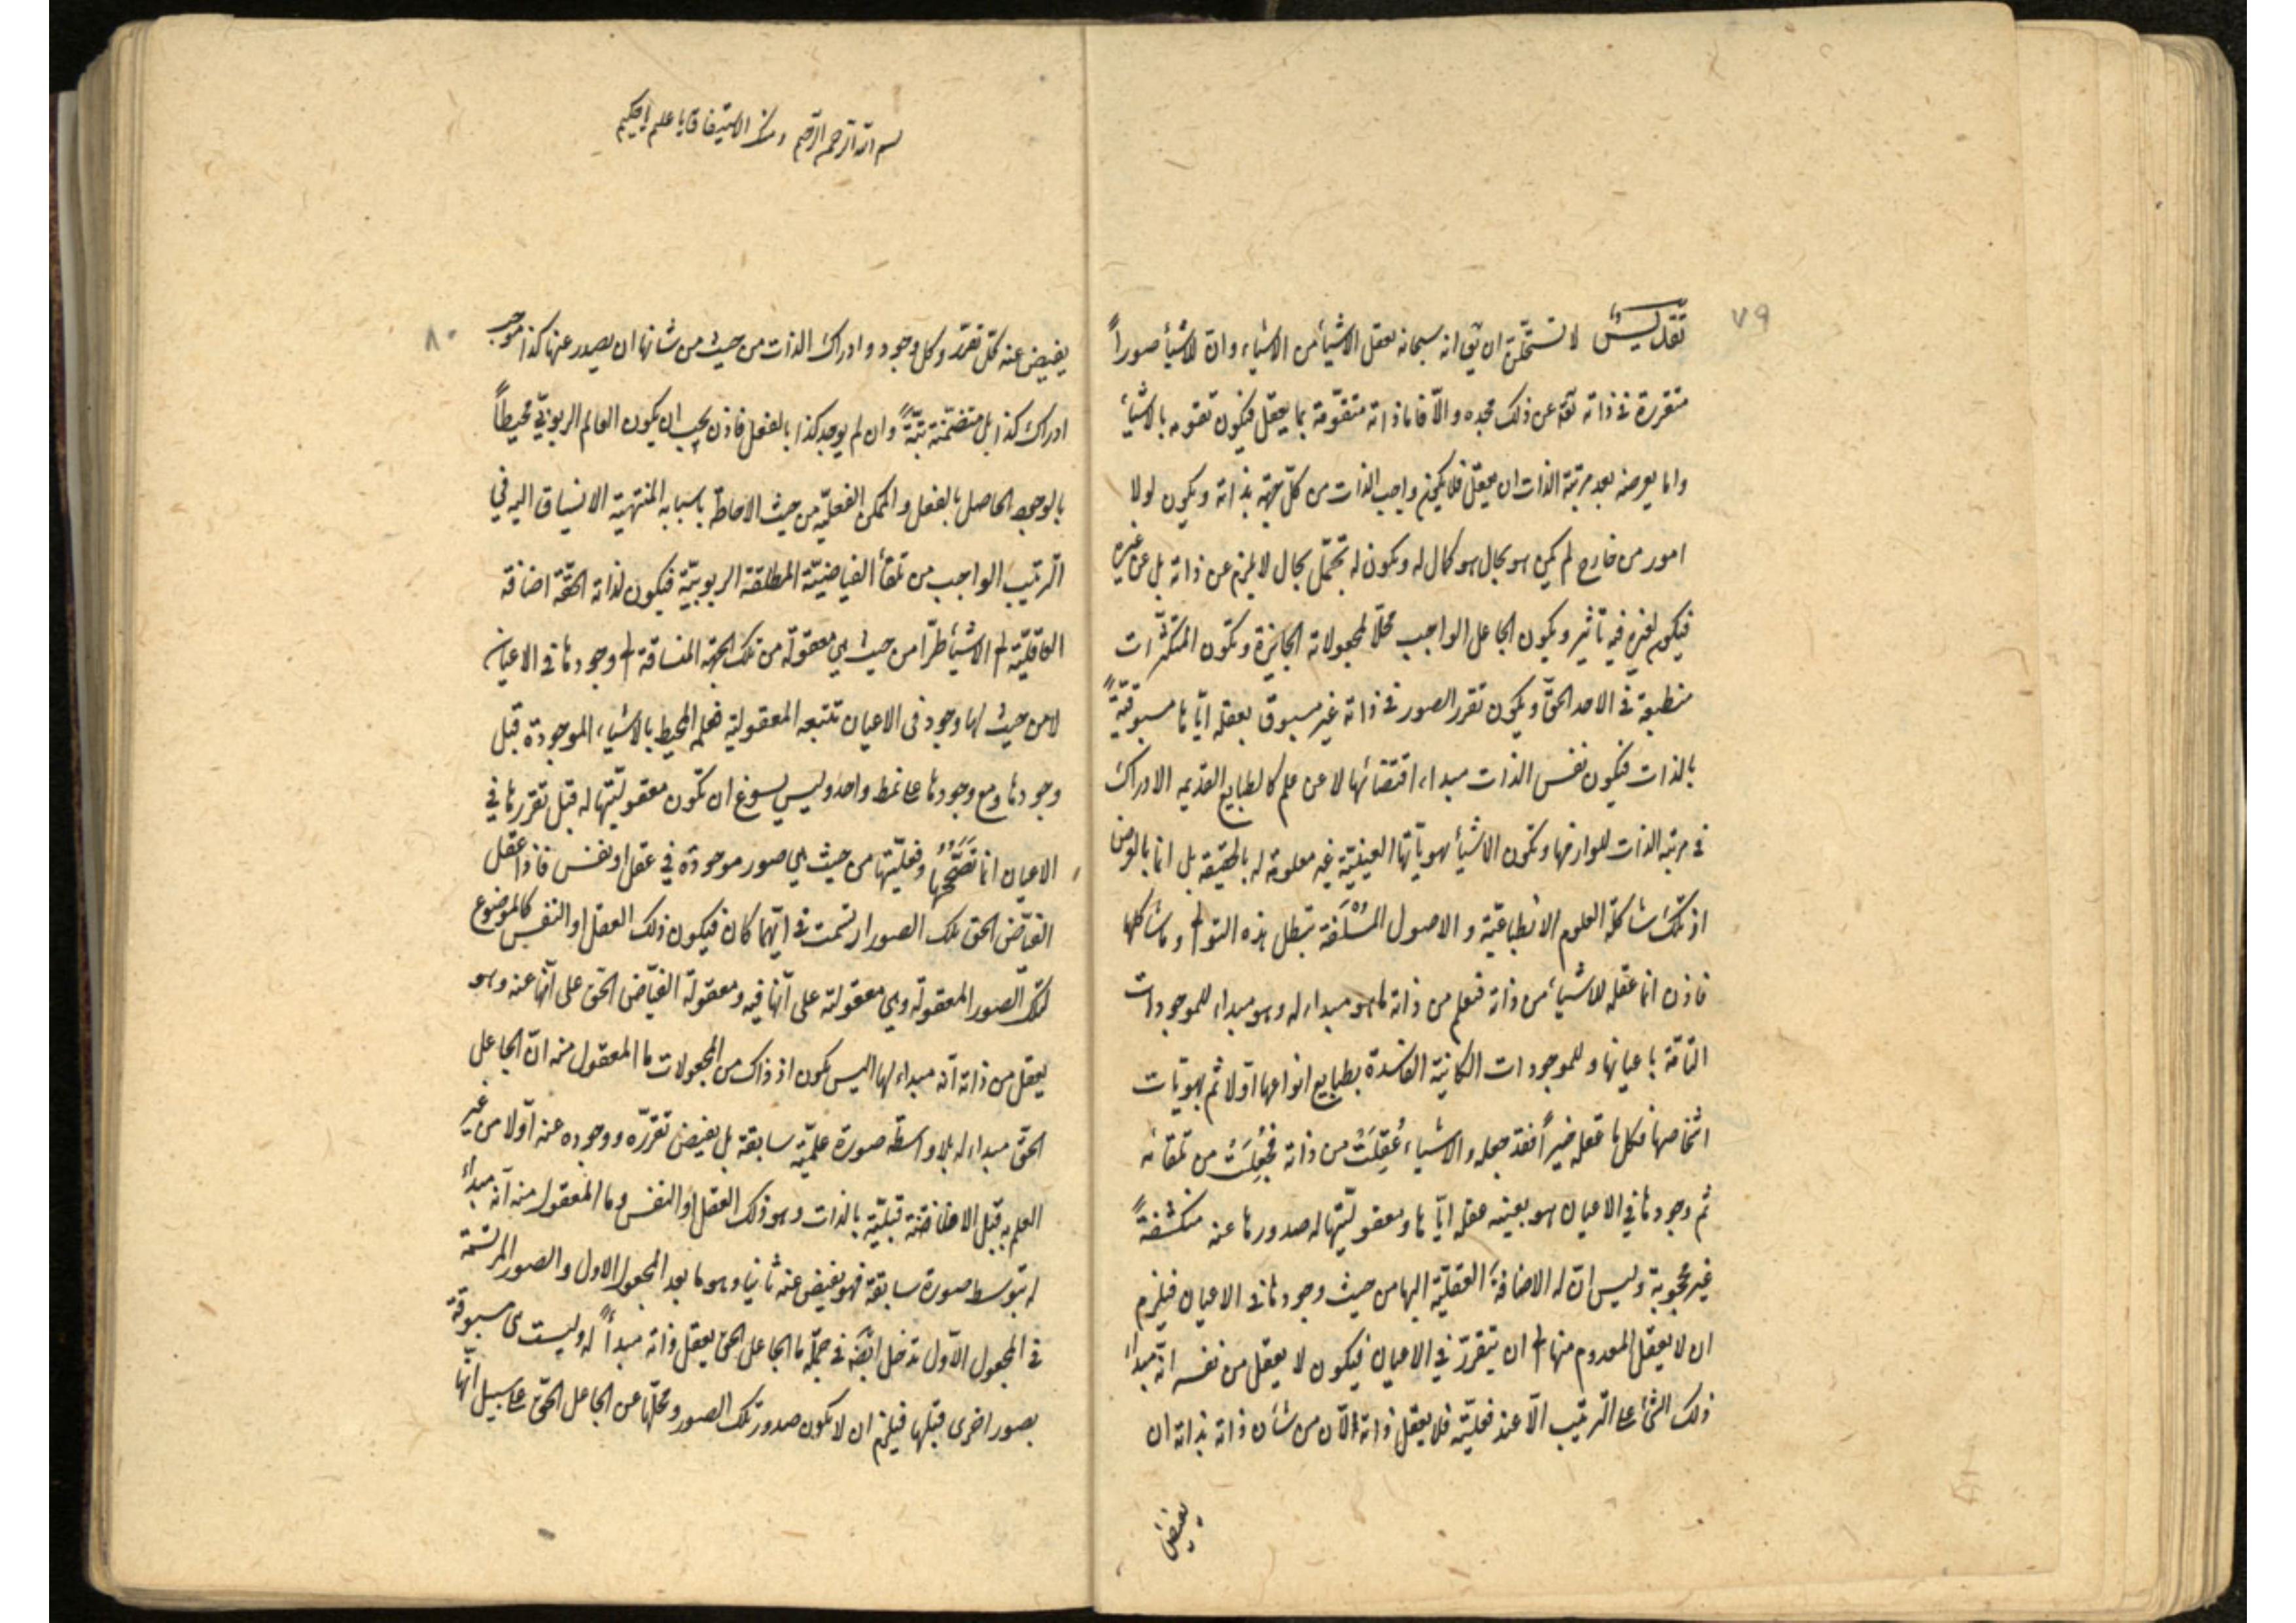 ٧٩
تقديس لا تستحلّن ان يق انه سبحانه يعقل الاشيأ من الاشياء وان للاشيأ صوراً
متقررة فى ذاته تقه عن ذلك مجده والّا فاما ذاته متقوّمة بما يعقل فيكون تقومه بالاشيأ
واما يعرضه بعد مرتبة الذات ان يعقل فلا يكون واجب الذات من كلّ جهة بذاته ويكون لولا
امور من خارج لم يكن هو بحال هو كمال له ويكون له تجمّل بحال لا يلزم عن ذاته بل عن غيره
فيكون لغيره فيه تأثير ويكون الجاعل الواجب محلّاً لمجعولاته الجايزة وتكون المتكثّرات
منطبعة فى الاحد الحقّ ويكون تقرر الصور فى ذاته غير مسبوق بعقله ايّاها مسبوقيّةً
بالذات فيكون نفس الذات مبداء اقتضائها لا عن علم كالطبايع العديمه الادراك
فى مرتبة الذات للوازمها وتكون الاشيأ بهويّاتها العينيّة غير معلومة له بالحقيقه بل انما بالعرض
اذ تلك شاكلة العلوم الانطباعيّة والاصول المسْلَفة تبطل هذه التوالى وما شاكلها
فاذن انما عقله للاشيأ من ذاته فيعلم من ذاته ما هو مبداء له وهو مبداء للموجودات
التامّة باعيانها وللموجودات الكاينة الفاسدة بطبايع انواعها اوّلا ثم بهويّات
اشخاصها فكل ما عقله خيراً فقد جعله والاشياء عُقِلَتْ من ذاته فجُعِلَتْ من تلقائه
ثم وجودها في الاعيان هو بعينه عقله ايّاها ومعقوليّتها له صدورها عنه منكشفةً
غير محجوبة وليس انّ له الاضافة العقليّة اليها من حيث وجودها فى الاعيان فيلزم
ان لا يعقل المعدوم منها الى ان يتقرّر في الاعيان فيكون لا يعقل من نفسه انّه مبداء
ذلك الشئ على الترتيب الّا عند فعليّته فلا يعقل ذاته الّا ان من شأن ذاته بذاته ان
يفيض
بسم الله الرحمن الرحيم
٨٠
يفيض عنه كلّ تقرّر وكل وجود وادراك الذات من حيث من شانها ان يصدر عنها كذا موجب
ادراك كذا بل متضمّنة بتّةً وان لم يوجد كذا بالفعل فاذن يجب ان يكون العالم الربوبيّ محيطاً
بالوجود الحاصل بالفعل والممكن الفعليّه من حيث الاحاطة باسبابه المنتهية الانسياق اليه في
الترتيب الواجب من تلقأ الفياضيّة المطلقة الربوبيّة فيكون لذاته الحقّة اضافة
العاقليّة الى الاشيأ طرّاً من حيث هي معقولة من تلك الجهة المنساقة الى وجودها فى الاعيان
لا من حيث لها وجود فى الاعيان تتبعه المعقولية فعلمه المحيط بالاشياء الموجودة قبل
وجودها ومع وجودها على نمط واحد وليس يسوغ ان تكون معقوليّتها له قبل تقررها في
الاعيان انما تصحّحها وفعليّتها من حيث هي صور موجودة في عقل او نفس فاذا عقل
الفيّاض الحق تلك الصور ارتسمت فى ايّهما كان فيكون ذلك العقل او النفس كالموضوع
لتلك الصور المعقولة وهي معقولة على انّها فيه ومعقولة الفيّاض الحق على انّها عنه وهو
يعقل من ذاته انّه مبداء لها اليس يكون اذ ذاك من المجعولات ما المعقول منه انّ الجاعل
الحق مبداء له بلا واسطة صورة علميّة سابقة بل يفيض تقرّره ووجوده عنه اوّلا من غير
العلم به قبل الافاضة قبليّة بالذات وهو ذلك العقل او النفس وما المعقول منه انّه مبدأ
له بتوسط صورة سابقة فهو يفيض عنه ثانيا وهو ما بعد المجعول الاول والصور المرتسمة
فى المجعول الاوّل تدخل ايضه فى جملة ما الجاعل الحق يعقل ذاته مبدأً له وليست هى مسبوقة
بصور اخرى قبلها فيلزم ان لا يكون صدور تلك الصور ومحلّها عن الجاعل الحقّ على سبيل انّها